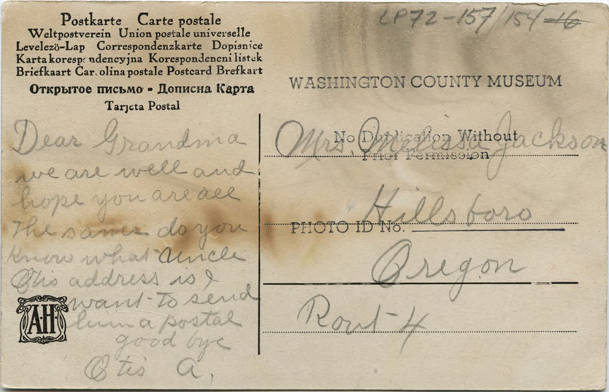 Postkarte Carte postale
Weltpostverein Union postale universelle
Levelező-Lap Correspondenzkarte Dopisnice
Karta korespondencyjna Korespondencni listek
Briefkaart Carolina postale Postcard Brefkart
Открытое письмо - Дописна Карта
Tarjeta Postal
LP72-157/154 16
WASHINGTON COUNTY MUSEUM
No Duplication Without
Prior Permission
PHOTO ID No.
Dear Grandma
we are well and
hope you are all
the same do you
know what Uncle
Otis address is I
want to send
him a postal
good bye
Otis A.
Mrs. Melissa Jackson
Hillsboro
Oregon
Rout 4
AH